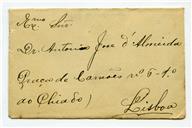 Exmo Snr
Dr. Antonio José d'Almeida
Praça de Camões nº 6-1º
ao Chiado)
Lisboa